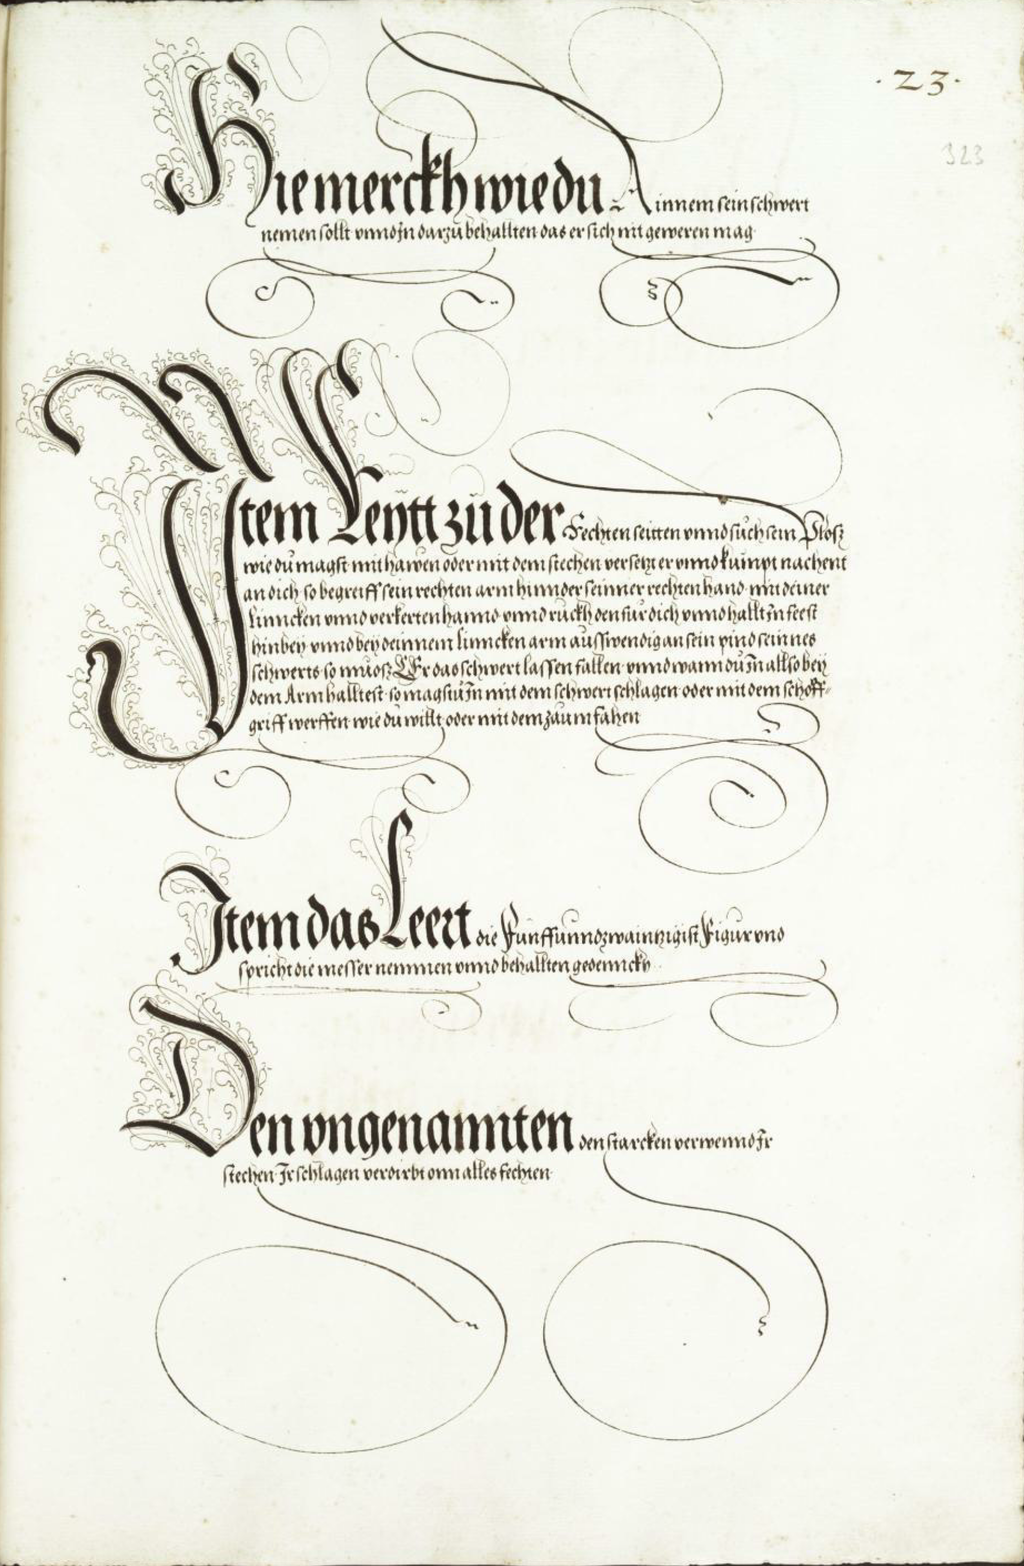 ·23·
323
Hie merckh wie du Ainnem sein schwert
nemen sollt vnnd Jn darzu behallten das er sich nit geweren mag
Jtem Reytt zu der Fechten seitten vnnd such sein Plosz
wie du magst mit hawen oder mit dem stechen versetzt er vnnd kumpt nachent
an dich so begreiff sein rechten arm hinnder seinner rechten hand mit deiner
linncken vnnd verkerten hannd vnnd ruckh den fur dich vnnd hallt Jn feest
hinbey vnnd bey deinnem linncken arm ausswendig an sein pind seinnes
schwerts so muosz Er das schwert lassen fallen vnnd wann du Jn allso bey
dem Arm halltest so magstu Jn mit dem schwert schlagen oder mit dem schoff-
griff werffen wie du willt oder mit dem zaum fahen
Jtem das Leert die Funffunndzwaintzigist Figur vnd
spricht die messer nemmen vnnd behallten gedennckh
Den vngenannten den starcken verwennd Jr
stechen Jr schlagen verdirbt onn alles fechten